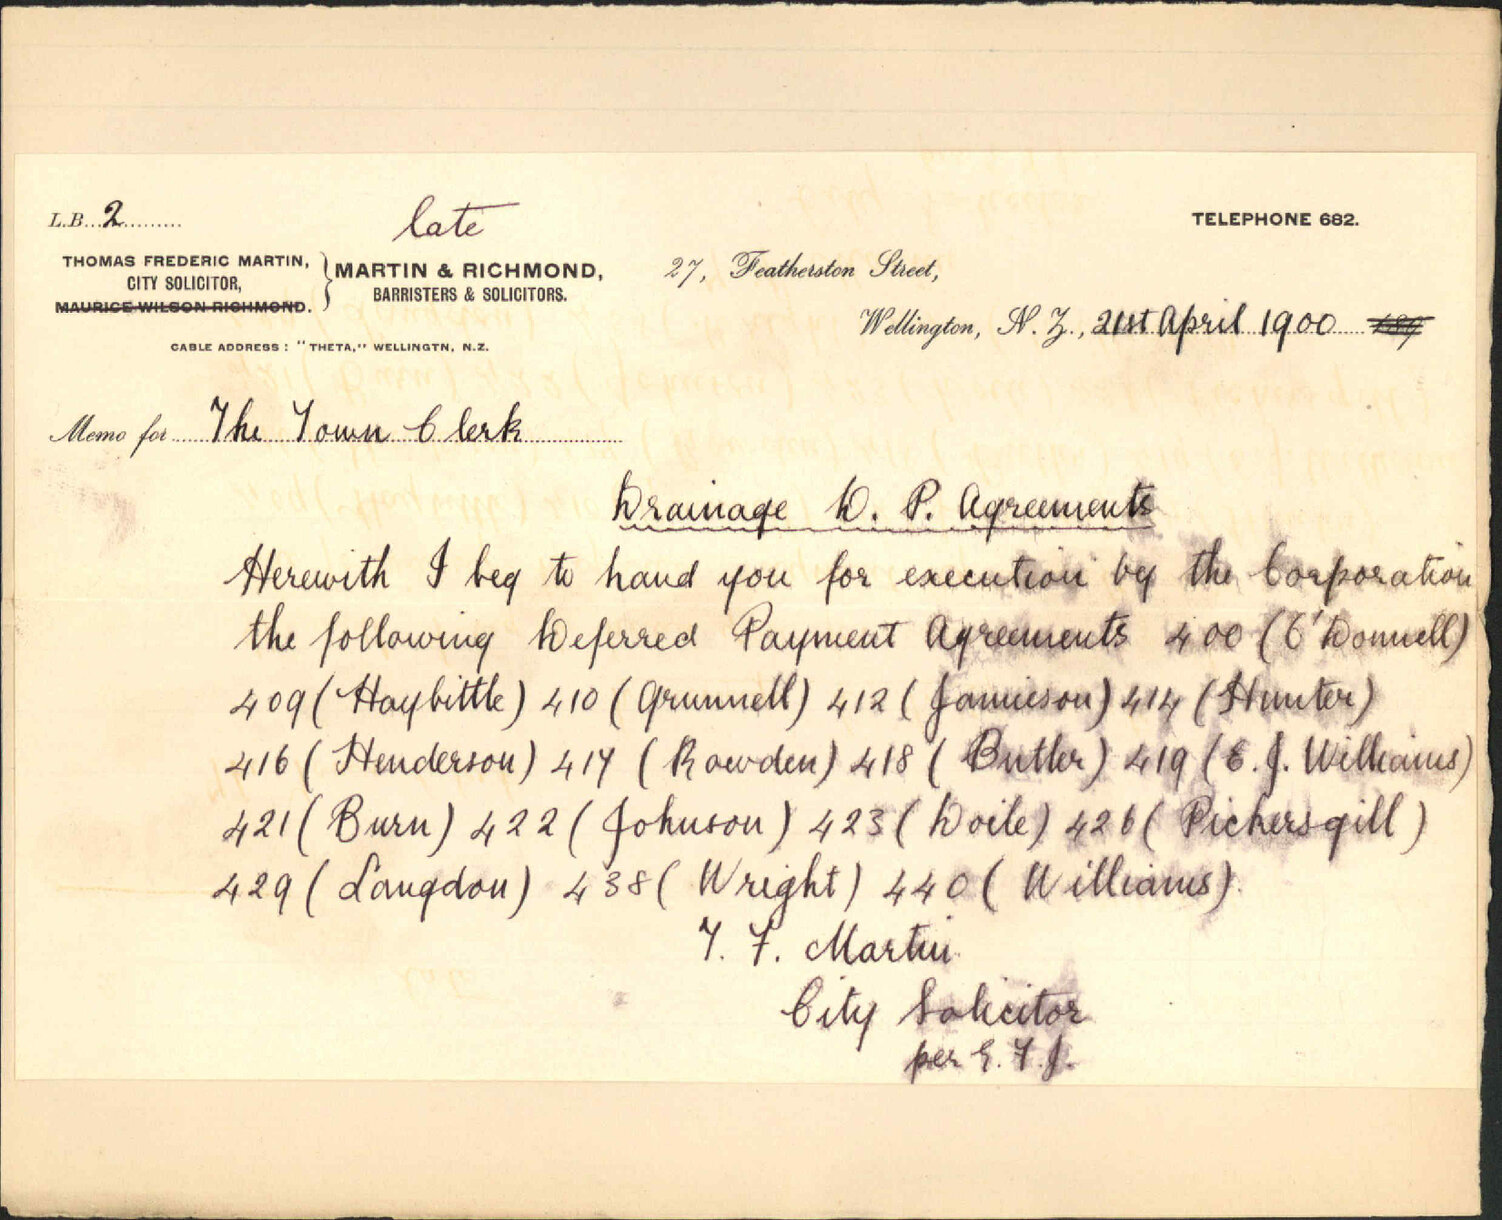 L.B. 2
late
TELEPHONE 682.
THOMAS FREDERIC MARTIN,
CITY SOLICITOR,
MAURICE WILSON RICHMOND.
MARTIN & RICHMOND,
BARRISTERS & SOLICITORS.
27, Featherston Street,
Wellington, N.Z., 21st April 1900 189
CABLE ADDRESS: "THETA," WELLINGTN, N.Z.
Memo for The Town Clerk
Drainage D. P. Agreements
Herewith I beg to hand you for execution by the Corporation
the following Deferred Payment Agreements 400 (O'Donnell)
409 (Haybittle) 410 (Grunnell) 412 (Jamieson) 414 (Hunter)
416 (Henderson) 417 (Rowden) 418 (Butler) 419 (E. J. Williams)
421 (Burn) 422 (Johnson) 423 (Doile) 426 (Pickersgill)
429 (Langdon) 438 (Wright) 440 (Williams).
T. F. Martin
City Solicitor
per E. T. J.